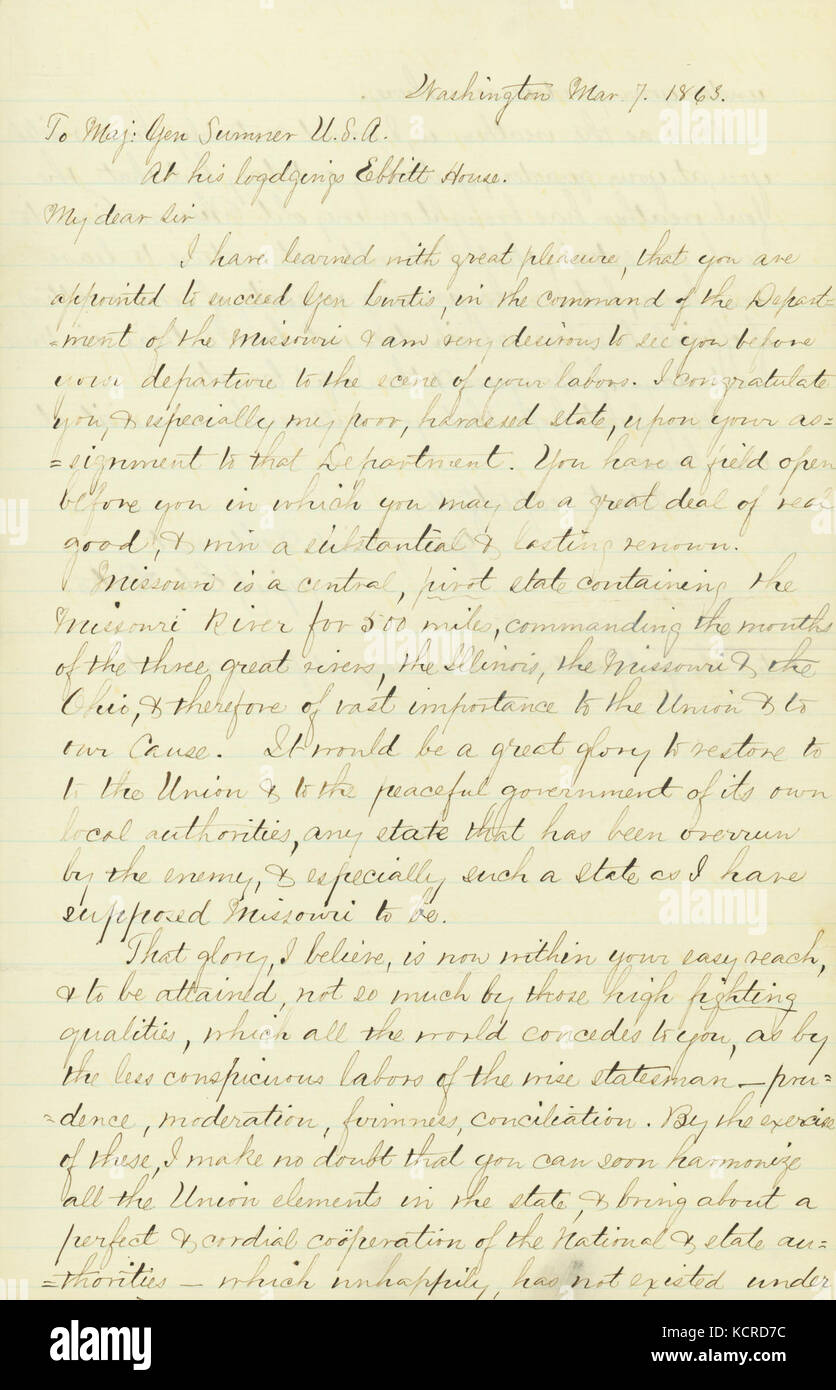 Washington Mar. 7. 1863.
To Maj: Gen Sumner U.S.A.
At his logdgings Ebbitt House.
My dear Sir
I have learned with great pleasure, that you are
appointed to succeed Gen Curtis, in the command of the Depart=
=ment of the Missouri & am very desirous to see you before
your departure to the scene of your labors. I congratulate
you, & especially my poor, harassed state, upon your as=
=signment to that Department. You have a field open
before you in which you may do a great deal of real
good, & win a substantial & lasting renown.
Missouri is a central, pivot state containing the
Missouri River for 500 miles, commanding the mouths
of the three great rivers, the Illinois, the Missouri & the
Ohio, & therefore of vast importance to the Union & to
our Cause. It would be a great glory to restore to
to the Union & to the peaceful government of its own
local authorities, any state that has been overrun
by the enemy, & especially such a state as I have
supposed Missouri to be.
That glory, I believe, is now within your easy reach,
& to be attained, not so much by those high fighting
qualities, which all the world concedes to you, as by
the less conspicuous labors of the wise statesman — pru=
=dence, moderation, firmness, conciliation. By the exercise
of these, I make no doubt that you can soon harmonize
all the Union elements in the state, & bring about a
perfect & cordial coöperation of the National & state au=
=thorities — which unhappily, has not existed under
alamy
alamy
alamy
alamy
Image ID: KCRD7C
www.alamy.com